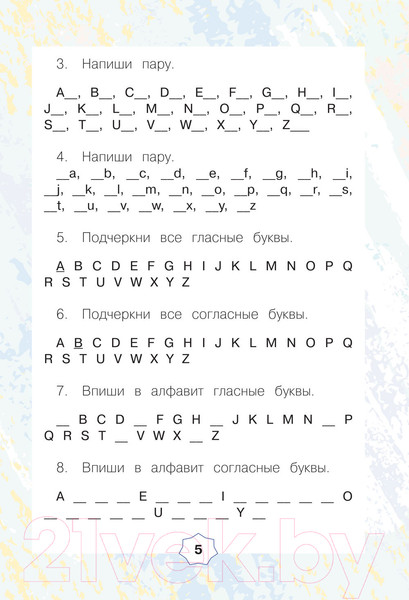 3. Напиши пару.
A__, B__, C__, D__, E__, F__, G__, H__, I__,
J__, K__, L__, M__, N__, O__, P__, Q__, R__,
S__, T__, U__, V__, W__, X__, Y__, Z___
4. Напиши пару.
__a, __b, __c, __d, __e, __f, __g, __h, __i,
__j, __k, __l, __m, __n, __o, __p, __q, __r, __s,
__t, __u, __v, __w, __x, __y, __z
5. Подчеркни все гласные буквы.
A B C D E F G H I J K L M N O P Q
R S T U V W X Y Z
6. Подчеркни все согласные буквы.
A B C D E F G H I J K L M N O P Q
R S T U V W X Y Z
7. Впиши в алфавит гласные буквы.
__ B C D __ F G H __ J K L M N __ P
Q R S T __ V W X __ Z
8. Впиши в алфавит согласные буквы.
A __ __ __ E __ __ __ I __ __ __ __ __ O
__ __ __ __ __ U __ __ __ Y __
5
21vek.by